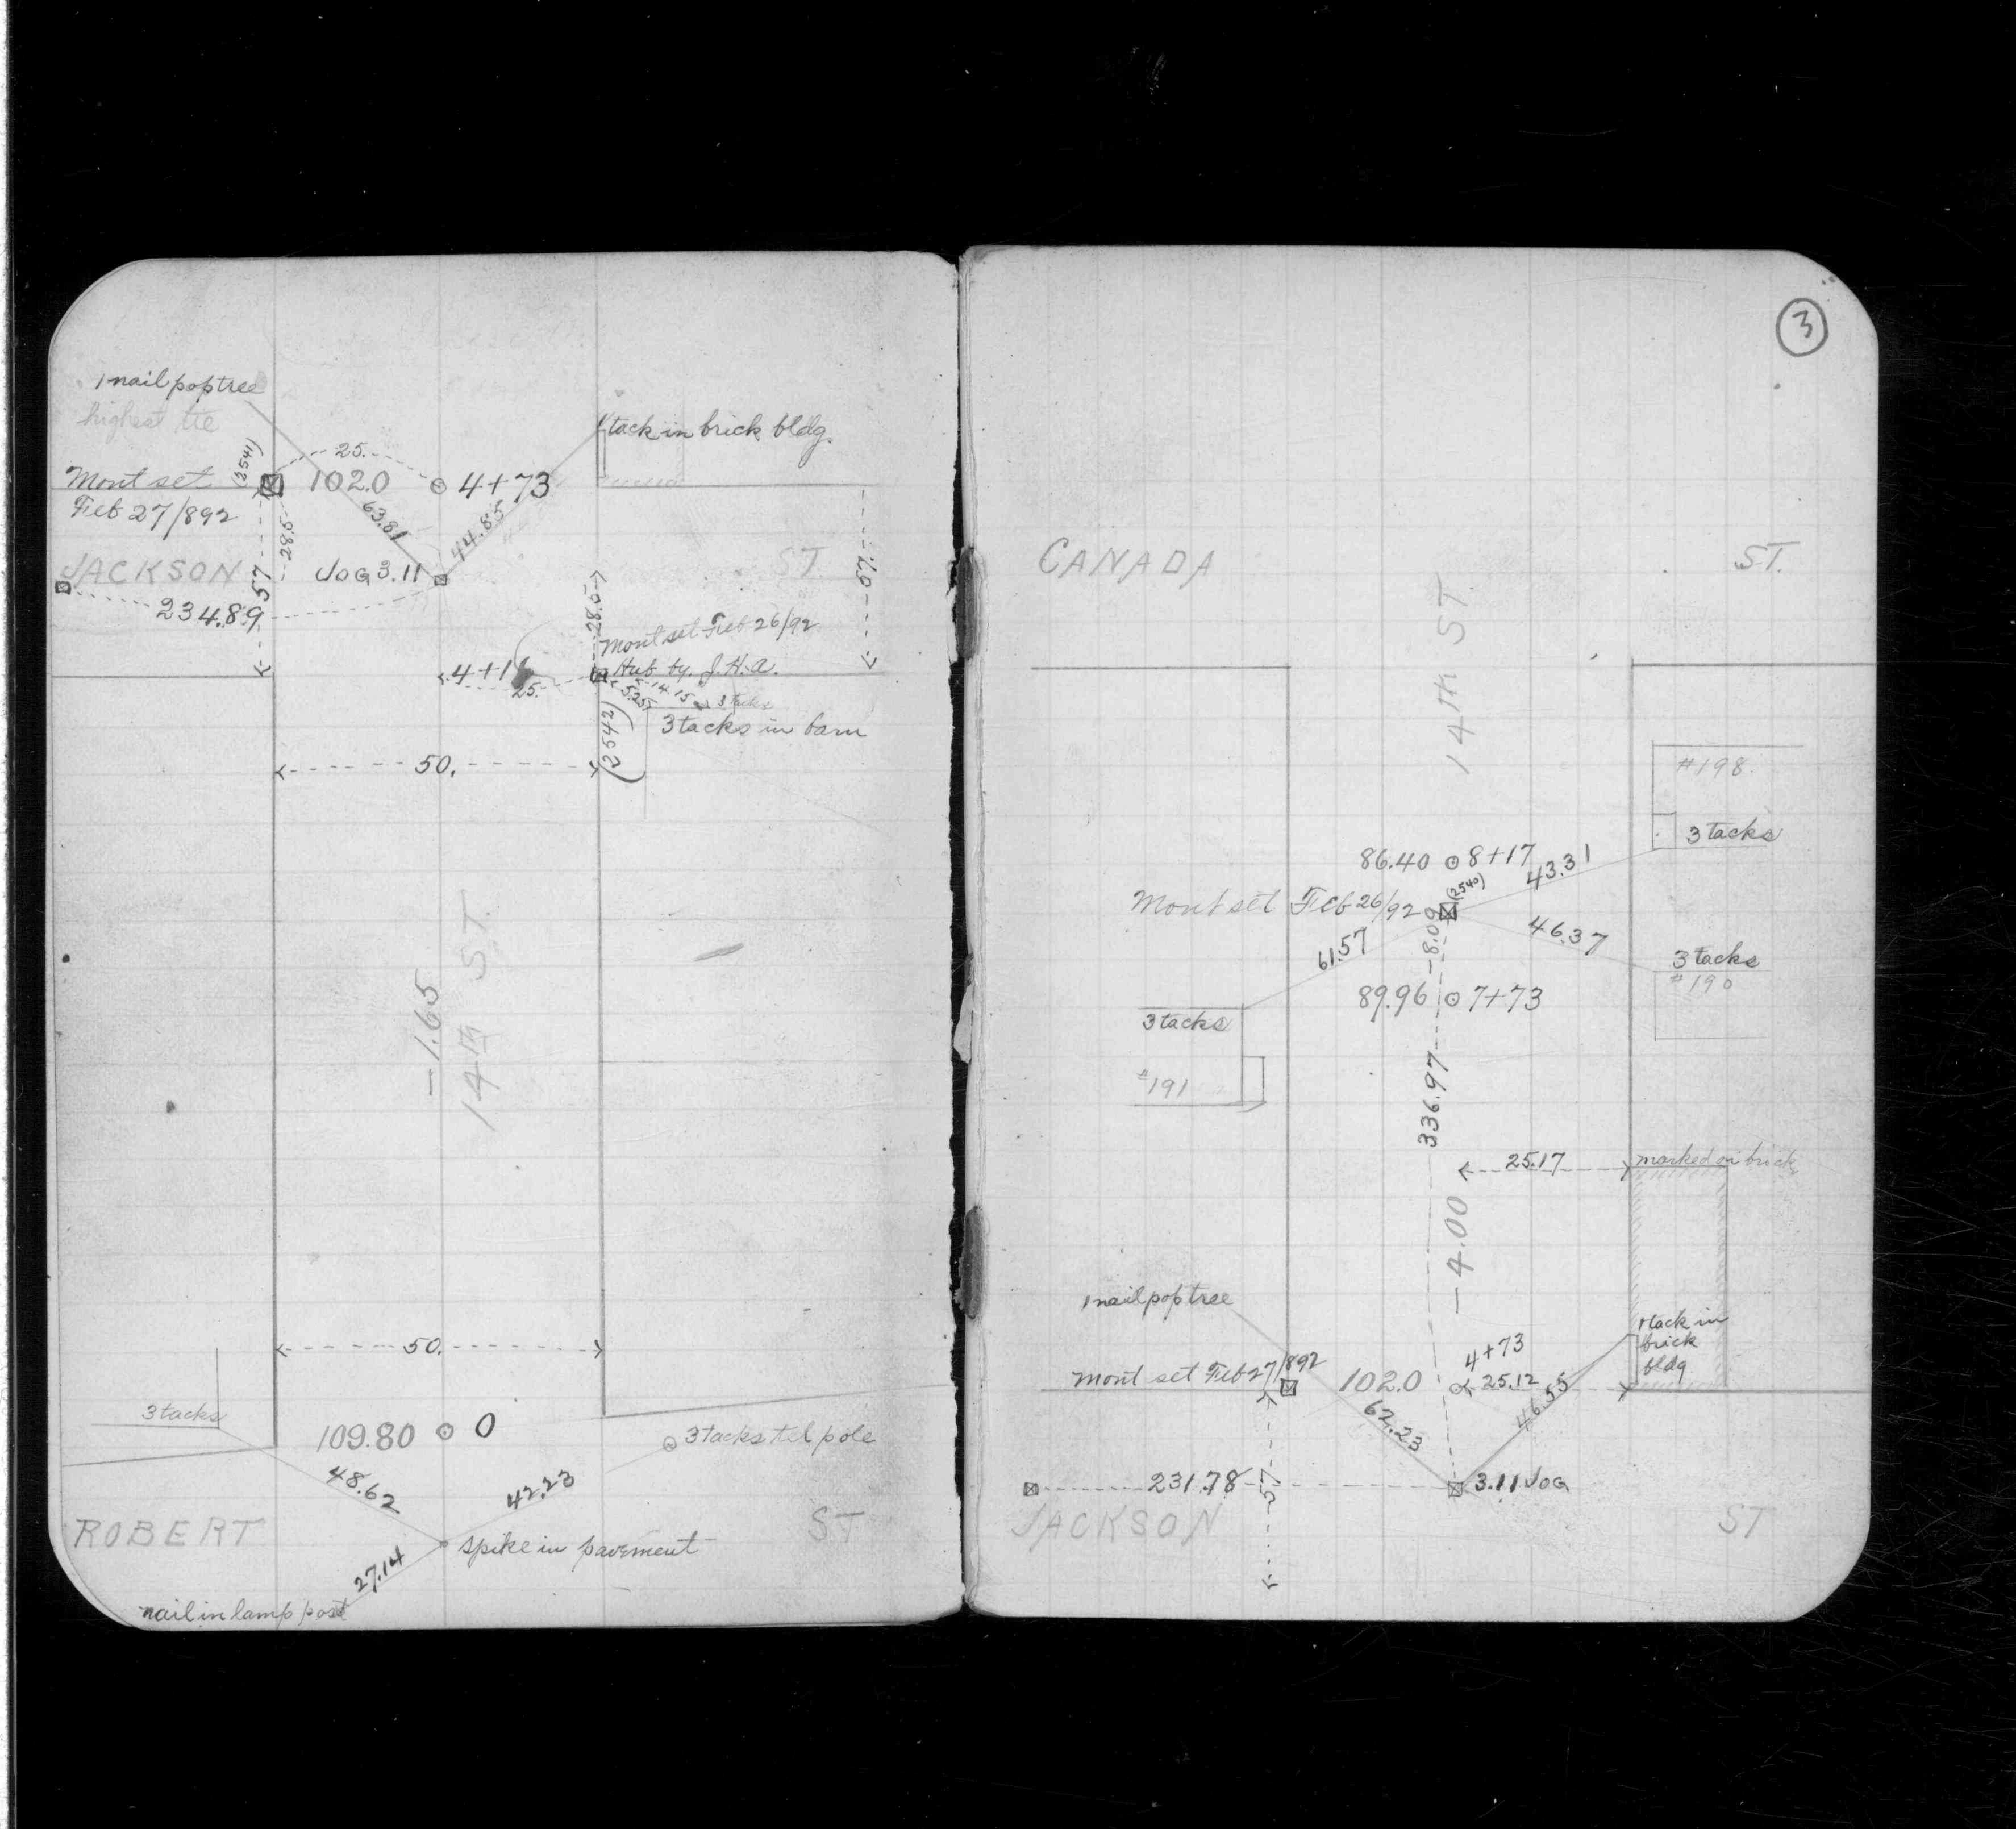 1 nail pop tree
highest tie
1 tack in brick bldg.
(2541)
25.
Mont set
Feb 27/892
102.0
4+73
63.81
44.85
28.5
JACKSON
57
JOG 3.11
ST.
57.0
234.89
28.5
Mont set Feb 26/92
Hub by. J.H.A.
4+16
25.
5.25
14.15
3 tacks
3 tacks in barn
(2542)
50.
-1.65
14TH ST.
50.
3 tacks
109.80
0
3 tacks tel pole
48.62
42.23
ROBERT
ST
spike in pavement
27.14
nail in lamp post
3
CANADA
ST.
14TH ST.
#198.
3 tacks
86.40
8+17
43.31
(2540)
Mont set Feb 26/92
8.09
46.37
61.57
3 tacks
#190
89.96
7+73
3 tacks
#191
336.97
25.17
marked on brick
-4.00
1 nail pop tree
1 tack in
brick
bldg
4+73
Mont set Feb 27/892
102.0
25.12
62.23
46.55
231.78
57
3.11 JOG
JACKSON
ST